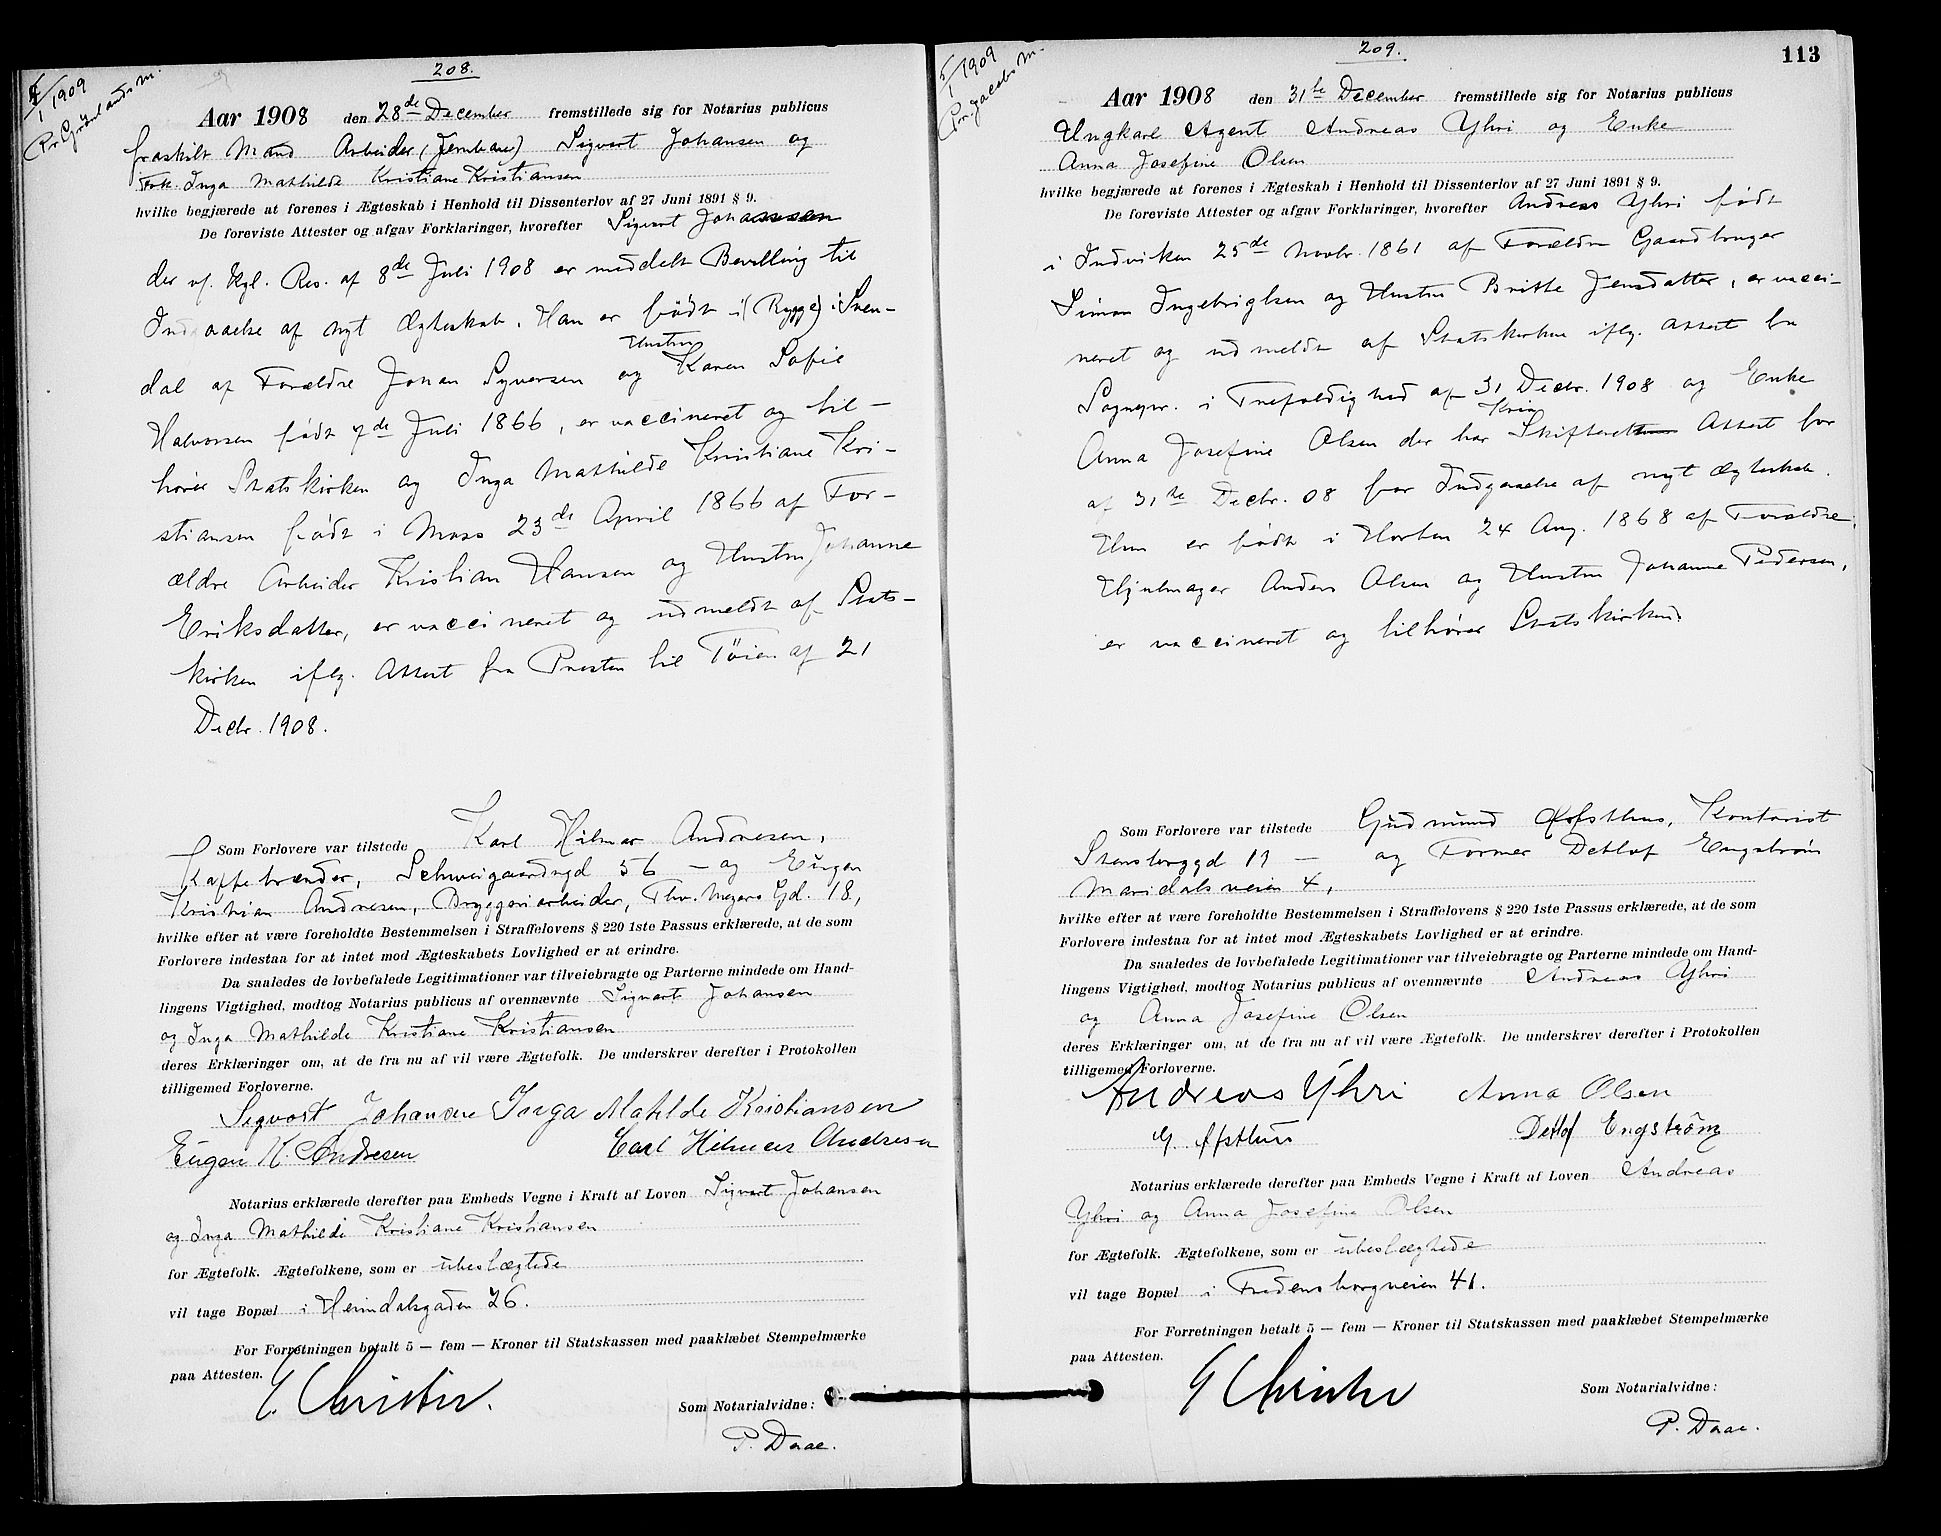 208.
4/1 1909
Pr. Grönlands m.
Aar 1908 den 28de December fremstillede sig for Notarius publicus
fraskilt Mand Arbeider (Jernbane) Sigvart Johansen og
Frk. Inga Mathilde Kristiane Kristiansen
hvilke begjærede at forenes i Ægteskab i Henhold til Dissenterlov af 27 Juni 1891 § 9.
De foreviste Attester og afgav Forklaringer, hvorefter Sigvart Johansen
der vf. Kgl. Res. af 8de Juli 1908 er meddelt Bevilling til
Indgaaelse af nyt Ægteskab. Han er født i (Rygge) i Sven-
dal af Forældre Johan Syversen og Hustru Karen Sofie
Halvorsen født 7de Juli 1866, er vaccineret og til-
hører Statskirken og Inga Mathilde Kristiane Kri-
stiansen født i Moss 23de April 1866 af For-
ældre Arbeider Kristian Hansen og Hustru Johanne
Eriksdatter, er vaccineret og udmeldt af Stats-
kirken iflg. Attest fra Presten til Töien af 21
Decbr. 1908.
Som Forlovere var tilstede Karl Hilmar Andresen,
Kaffebrænder, Schweigaardsgd 56 — og Eugen
Kristian Andresen, Bryggeriarbeider, Thv. Meyers Gd. 18,
hvilke efter at være foreholdte Bestemmelsen i Straffelovens § 220 1ste Passus erklærede, at de som
Forlovere indestaa for at intet mod Ægteskabets Lovlighed er at erindre.
Da saaledes de lovbefalede Legitimationer var tilveiebragte og Parterne mindede om Hand-
lingens Vigtighed, modtog Notarius publicus af ovennævnte Sigvart Johansen
og Inga Mathilde Kristiane Kristiansen
deres Erklæringer om, at de fra nu af vil være Ægtefolk. De underskrev derefter i Protokollen
tilligemed Forloverne.
Sigvart Johansen Inga Matilde Kristiansen
Eugen K. Andresen Carl Hilmar Andresen
Notarius erklærede derefter paa Embeds Vegne i Kraft af Loven Sigvart Johansen
og Inga Mathilde Kristiane Kristiansen
for Ægtefolk. Ægtefolkene, som er ubeslægtede
vil tage Bopæl i Heimdalsgaden 26.
For Forretningen betalt 5 — fem — Kroner til Statskassen med paaklæbet Stempelmærke
paa Attesten.
E. Christie.
Som Notarialvidne:
P. Daae.
209.
113
5/1 1909
Pr. Jacobs m.
Aar 1908 den 31te December fremstillede sig for Notarius publicus
Ungkarl Agent Andreas Yhri og Enke
Anna Josefine Olsen
hvilke begjærede at forenes i Ægteskab i Henhold til Dissenterlov af 27 Juni 1891 § 9.
De foreviste Attester og afgav Forklaringer, hvorefter Andreas Yhri født
i Indviken 25de Novbr. 1861 af Forældre Gaardbruger
Simon Ingebrigtsen og Hustru Britte Jensdatter, er vacci-
neret og udmeldt af Statskirken iflg. Attest fra
Sognepr. i Trefoldighed af 31 Decbr. 1908 og Enke
Anna Josefine Olsen der har Kria Skifteret Attest for
af 31te Decbr. 08 for Indgaaelse af nyt Ægteskab.
Hun er født i Horten 24 Aug. 1868 af Forældre
Hjulmager Anders Olsen og Hustru Johanne Pedersen,
er vaccineret og tilhører Statskirken.
Som Forlovere var tilstede Gudmund Afsthus, Kontorist
Stensberggd 11 — og Former Detlof Engström
Maridalsveien 4,
hvilke efter at være foreholdte Bestemmelsen i Straffelovens § 220 1ste Passus erklærede, at de som
Forlovere indestaa for at intet mod Ægteskabets Lovlighed er at erindre.
Da saaledes de lovbefalede Legitimationer var tilveiebragte og Parterne mindede om Hand-
lingens Vigtighed, modtog Notarius publicus af ovennævnte Andreas Yhri
og Anna Josefine Olsen
deres Erklæringer om, at de fra nu af vil være Ægtefolk. De underskrev derefter i Protokollen
tilligemed Forloverne.
Andreas Yhri Anna Olsen
G. Afsthus Detlof Engström
Notarius erklærede derefter paa Embeds Vegne i Kraft af Loven Andreas
Yhri og Anna Josefine Olsen
for Ægtefolk. Ægtefolkene, som er ubeslægtede
vil tage Bopæl i Fredensborgveien 41.
For Forretningen betalt 5 — fem — Kroner til Statskassen med paaklæbet Stempelmærke
paa Attesten.
E Christie
Som Notarialvidne:
P. Daae.